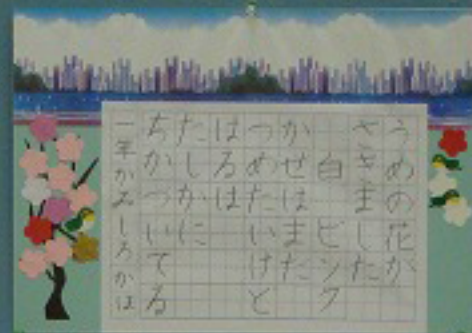 うめの花が
さきました
白 ピンク
かぜはまだ
つめたいけど
はるは
たしかに
ちかづいてる